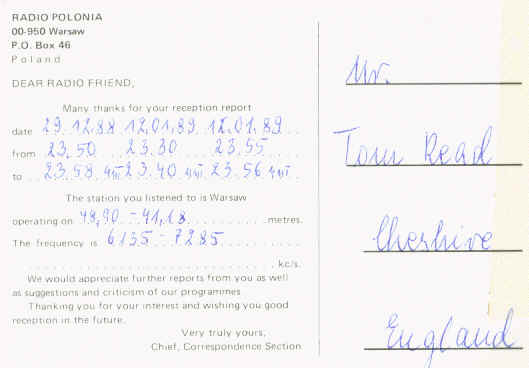 RADIO POLONIA
00-950 Warsaw
P.O. Box 46
Poland
DEAR RADIO FRIEND,
Many thanks for your reception report
date 29.12.88 12.01.89 12.01.89
from 23.50 23.30 23.55
to 23.58 GMT 23.40 GMT 23.56 GMT
The station you listened to is Warsaw
operating on 48,90 - 41,18 metres.
The frequency is 6135 - 7285
kc/s.
We would appreciate further reports from you as well
as suggestions and criticism of our programmes
Thanking you for your interest and wishing you good
reception in the future.
Very truly yours,
Chief, Correspondence Section
Mr.
Tom Read
Cheshire
England